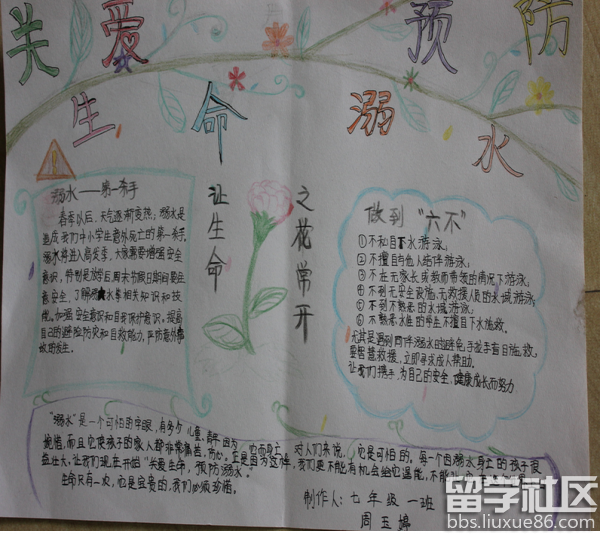 关爱 预防
生命 溺水
溺水——第一杀手
春季以后，天气逐渐变热，溺水是
造成我们中小学生意外死亡的第一杀手。
溺水将进入高发季，大家需要增强安全
意识，特别是放学后周末节假日期间要注
意安全，了解防水季相关知识和技
能，加强安全意识和自我保护意识，提高
自己的避险防灾和自救能力，严防意外事
故的发生。
让生命
之花常开
做到“六不”
①不私自下水游泳；
②不擅自与他人结伴游泳；
③不在无家长或教师带领的情况下游泳；
④不到无安全设施、无救援人员的水域游泳；
⑤不到不熟悉的水域游泳；
⑥不熟悉水性的学生不擅自下水施救。
尤其是遇到同伴溺水时避免手拉手盲目施救，
要智慧救援、立即寻求成人帮助。
让我们携手，为自己的安全、健康成长而努力
“溺水”是一个可怕的字眼，有多少儿童、青年因为 它而身亡，对人们来说， 它是可怕的，每一个因溺水身亡的孩子很
惋惜，而且它使孩子的家人都非常痛苦，伤心。正是因为这样，我们更不能有机会给它温床，不能让
益壮大，让我们现在开始“关爱生命，预防溺水”。
生命只有一次，它是宝贵的，我们必须珍惜。
制作人：七年级 一班
周玉婷
留学社区
bbs.liuxue86.com